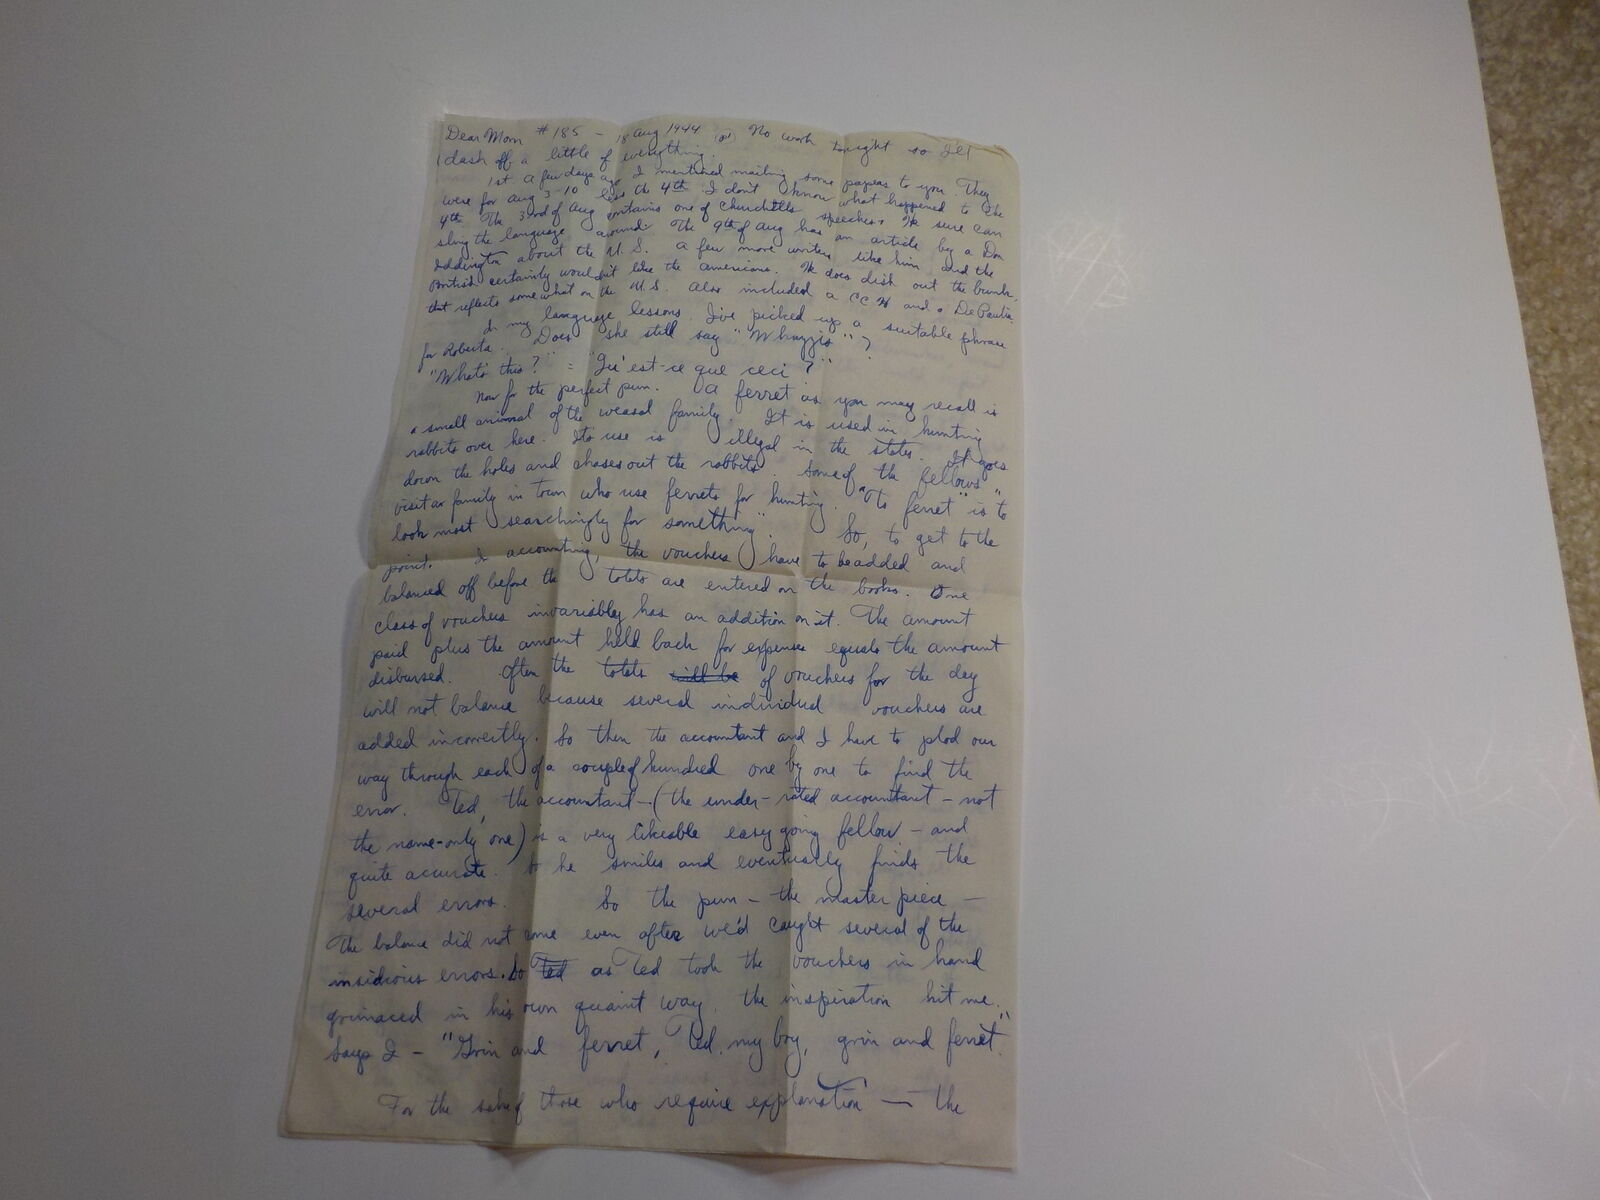 Dear Mom #185 - 18 Aug 1944 No work tonight so I'll
dash off a little of everything.
1st A few days ago I mentioned mailing some papers to you. They
were for Aug 3-10 less the 4th. I don't know what happened to the
4th. The 3rd of Aug contains one of Churchill's speeches. He sure can
sling the language around. The 9th of Aug has an article by a Don
Iddington about the U.S. A few more writers like him and the
British certainly wouldn't like the Americans. He does dish out the bunk
that reflects somewhat on the U.S. Also included a and a De Pantia.
In my language lessons, I've picked up a suitable phrase
for Roberta. Does she still say "Whazzis"?
"What's this?" = "Qu'est-ce que ceci?"
Now for the perfect pun. A ferret as you may recall is
a small animal of the weasal family. It is used in hunting
rabbits over here. Its use is illegal in the states. It goes
down the holes and chases out the rabbits. Some of the fellows
visit a family in town who use ferrets for hunting. "To ferret" is "to
look most searchingly for something". So, to get to the
point. I accounting, the vouchers have to be added and
balanced off before the totals are entered on the books. One
class of vouchers invariably has an addition on it. The amount
paid plus the amount held back for expenses equals the amount
disbursed. Often the totals will be of vouchers for the day
will not balance because several individual vouchers are
added incorrectly. So then the accountant and I have to plod our
way through each of a couple of hundred one by one to find the
error. Ted, the accountant - (the under-rated accountant - not
the name-only one) is a very likeable easy going fellow - and
quite accurate. So he smiles and eventually finds the
several errors. So the pun - the master piece -
The balance did not come even after we'd caught several of the
insidious errors. So Ted as Ted took the vouchers in hand
grimaced in his own quaint way, the inspiration hit me.
Says I - "Grin and ferret, Ted, my boy, grin and ferret."
For the sake of those who require explanation - the